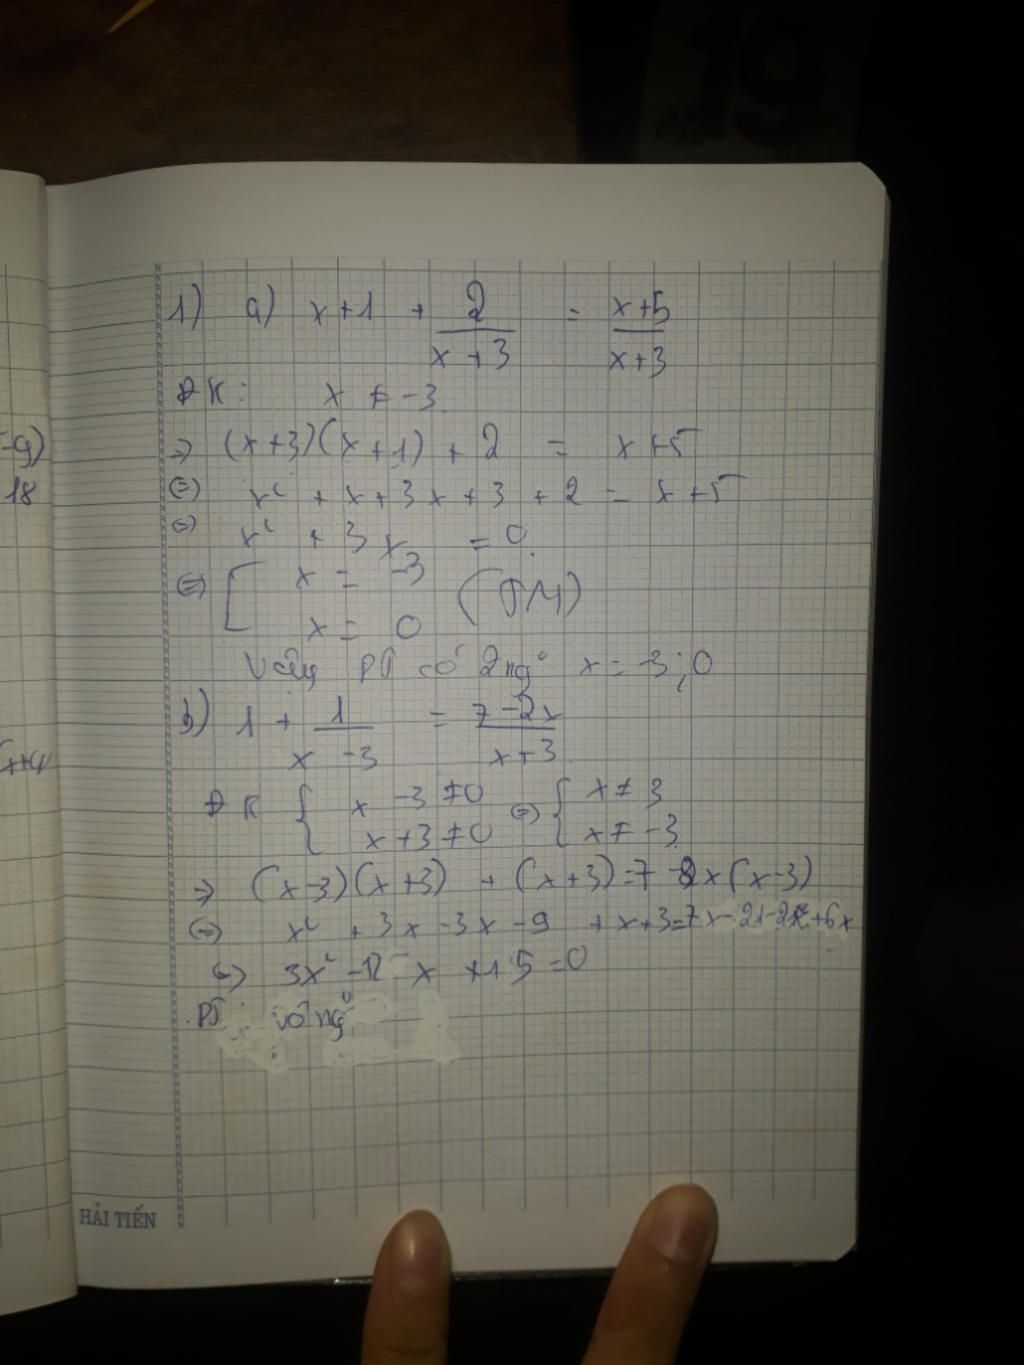 19
-9)
18
x+4
1) a) x+1 + 2/(x+3) = (x+5)/(x+3)
ĐK: x ≠ -3
=> (x+3)(x+1) + 2 = x+5
<=> x² + x + 3x + 3 + 2 = x+5
<=> x² + 3x = 0
<=> [ x = -3
x = 0 (TM)
Vậy PT có 2 ngº x = -3;0
b) 1 + 1/(x-3) = (7-2x)/(x+3)
ĐK { x-3≠0 <=> { x≠3
x+3≠0 x≠-3
=> (x-3)(x+3) + (x+3)=7-2x(x-3)
<=> x² + 3x-3x-9 +x+3=7x-21-2x²+6x
<=> 3x²-12x+15=0
PT vô ngº
HẢI TIẾN